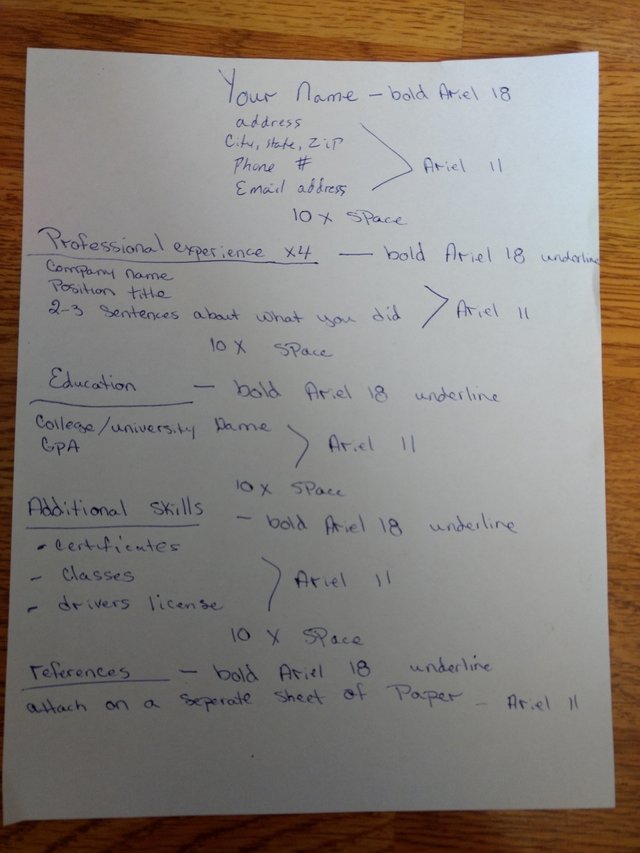 Your Name - bold Ariel 18
address
City, state, Zip
Phone #
Email address
Ariel 11
10 x Space
Professional experience x4 - bold Ariel 18 underline
Company name
Position title
2-3 Sentences about what you did
Ariel 11
10 x Space
Education - bold Ariel 18 underline
College/university Name
GPA
Ariel 11
10 x Space
Additional Skills - bold Ariel 18 underline
- certificates
- classes
- drivers license
Ariel 11
10 x Space
references - bold Ariel 18 underline
attach on a seperate sheet of Paper - Ariel 11